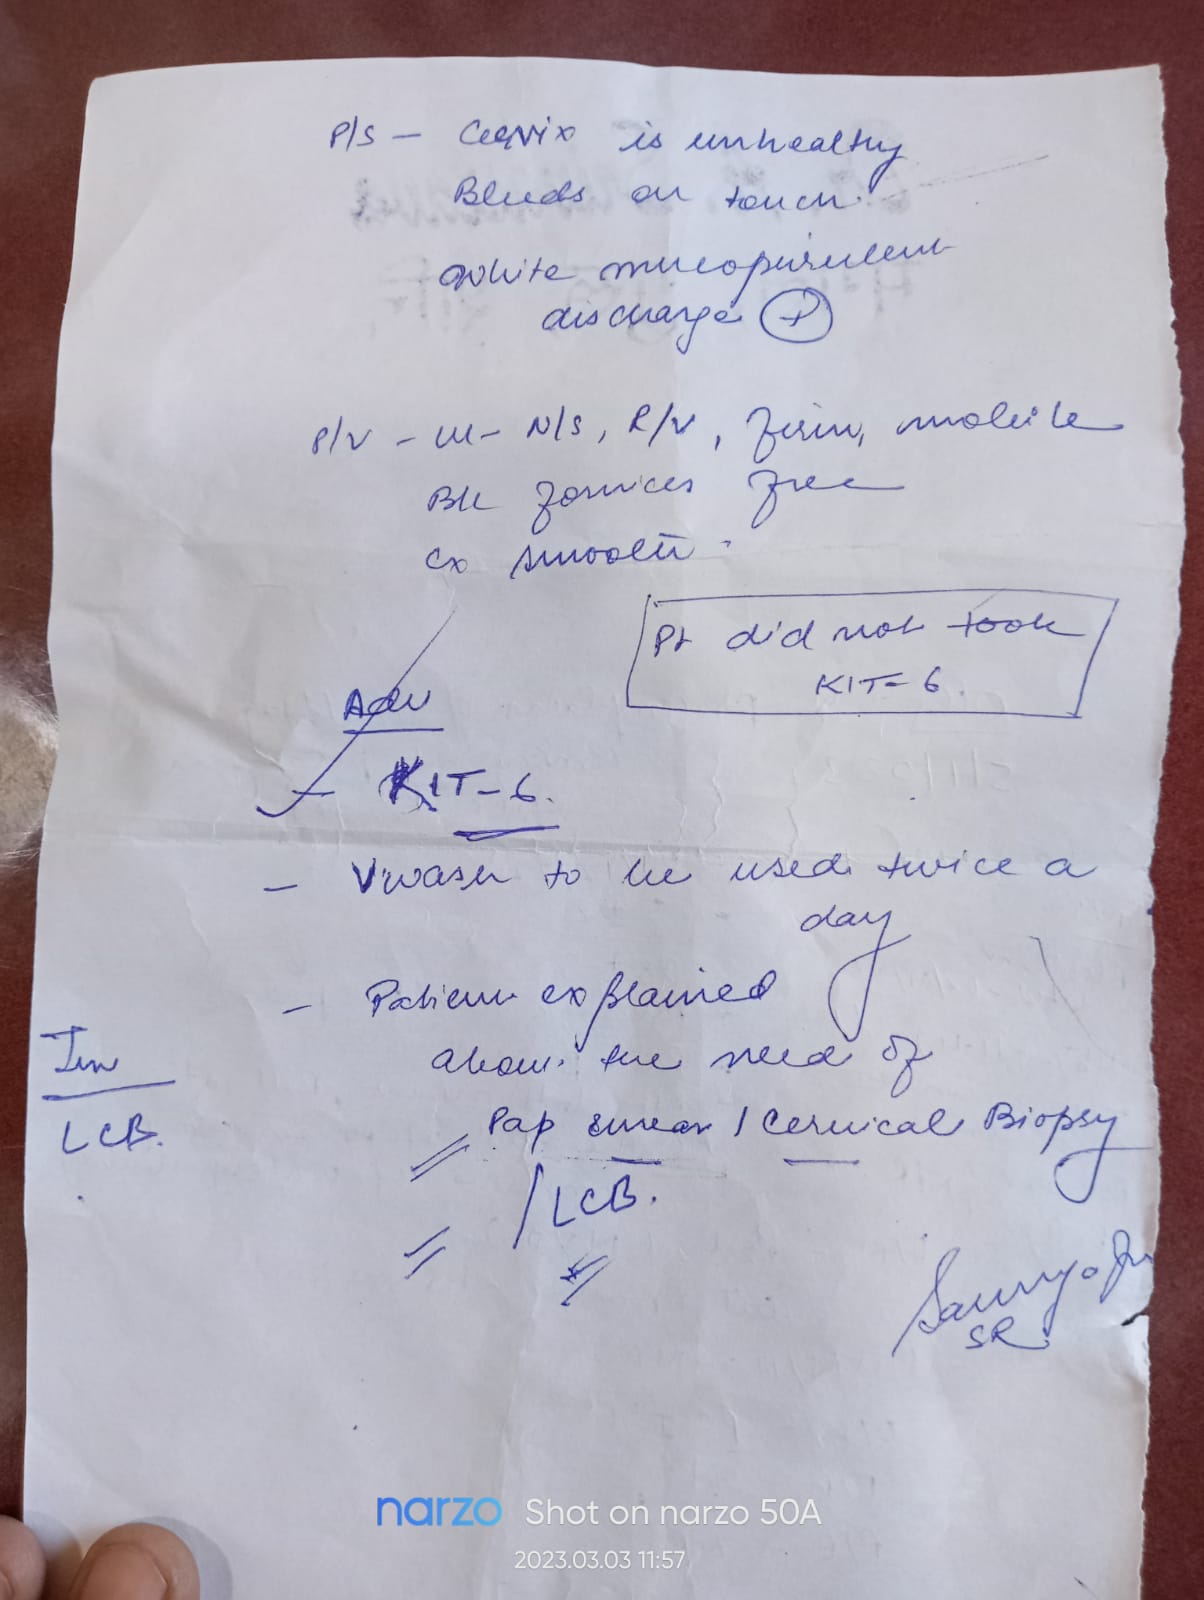 P/S - Cervix is unhealthy
Bleeds on touch.
White mucopurulent
discharge (+)
P/V - Ut - N/S, R/V, firm, mobile
B/L fornices free
Cx smooth.
Pt did not took
KIT-6.
Adv
- KIT-6.
- Vwash to be used twice a
day
- Patient explained
about the need of
Pap smear / Cervical Biopsy
/ LCB.
Inv
LCB.
SR
narzo Shot on narzo 50A
2023.03.03 11:57